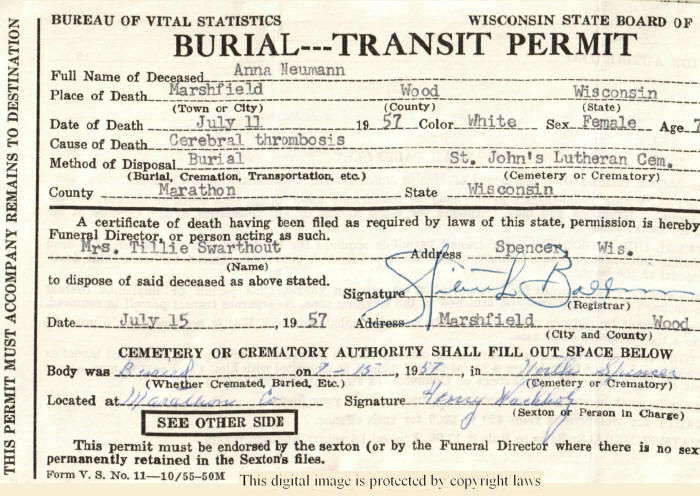 BUREAU OF VITAL STATISTICS WISCONSIN STATE BOARD OF
BURIAL---TRANSIT PERMIT
Full Name of Deceased Anna Neumann
Place of Death Marshfield Wood Wisconsin
(Town or City) (County) (State)
Date of Death July 11 1957 Color White Sex Female Age 7
Cause of Death Cerebral thrombosis
Method of Disposal Burial St. John's Lutheran Cem.
(Burial, Cremation, Transportation, etc.) (Cemetery or Crematory)
County Marathon State Wisconsin
A certificate of death having been filed as required by laws of this state, permission is hereby
Funeral Director, or person acting as such.
Mrs. Tillie Swarthout Address Spencer, Wis.
(Name)
to dispose of said deceased as above stated.
Signature
(Registrar)
Date July 15, 1957 Address Marshfield Wood
(City and County)
CEMETERY OR CREMATORY AUTHORITY SHALL FILL OUT SPACE BELOW
Body was Buried on 7-15-, 1957, in North Spencer
(Whether Cremated, Buried, Etc.) (Cemetery or Crematory)
Located at Marathon Co Signature Henry
(Sexton or Person in Charge)
SEE OTHER SIDE
This permit must be endorsed by the sexton (or by the Funeral Director where there is no sex
permanently retained in the Sexton's files.
Form V. S. No. 11—10/55-50M This digital image is protected by copyright laws
THIS PERMIT MUST ACCOMPANY REMAINS TO DESTINATION